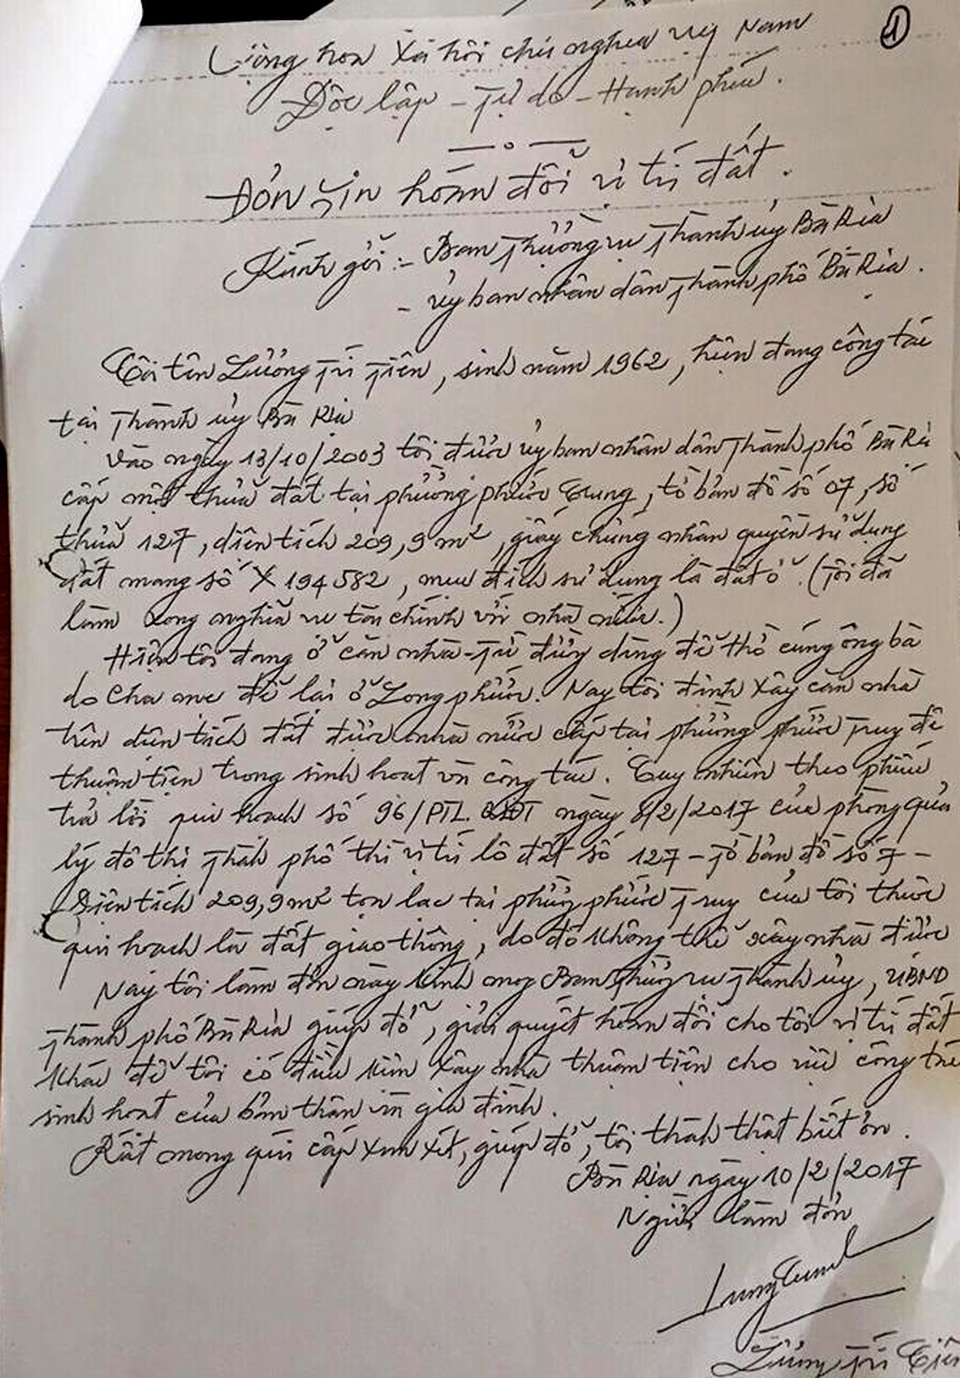 ①
Cộng hòa xã hội chủ nghĩa Việt Nam
Độc lập - Tự do - Hạnh phúc.
Đơn xin hoán đổi vị trí đất.
Kính gửi: - Ban Thường vụ Thành ủy Bà Rịa
- Ủy ban nhân dân Thành phố Bà Rịa.
Tôi tên Lương Trí Tiên, sinh năm 1962, hiện đang công tác
tại Thành ủy Bà Rịa
Vào ngày 13/10/2003 tôi được Ủy ban nhân dân Thành phố Bà Rịa
cấp một thửa đất tại phường Phước Trung, tờ bản đồ số 07, số
thửa 127, diện tích 209,9m², giấy chứng nhận quyền sử dụng
đất mang số X194582, mục đích sử dụng là đất ở. (Tôi đã
làm xong nghĩa vụ tài chính với nhà nước.)
Hiện tôi đang ở căn nhà từ đường dùng để thờ cúng ông bà
do cha mẹ để lại ở Long Phước. Nay tôi định xây căn nhà
trên diện tích đất được nhà nước cấp tại phường Phước Trung để
thuận tiện trong sinh hoạt và công tác. Tuy nhiên theo phiếu
trả lời qui hoạch số 96/PTL. QLĐT ngày 8/2/2017 của phòng quản
lý đô thị Thành phố thì vị trí lô đất số 127 - Tờ bản đồ số 7 -
Diện tích 209,9m² tọa lạc tại phường Phước Trung của tôi thuộc
qui hoạch là đất giao thông, do đó không thể xây nhà được
Nay tôi làm đơn này kính mong Ban Thường vụ Thành ủy, UBND
Thành phố Bà Rịa giúp đỡ, giải quyết hoán đổi cho tôi vị trí đất
khác để tôi có điều kiện xây nhà thuận tiện cho việc công tác
sinh hoạt của bản thân và gia đình.
Rất mong quí cấp xem xét, giúp đỡ, tôi thành thật biết ơn.
Bà Rịa ngày 10/2/2017
Người làm đơn
Lương Trí Tiên